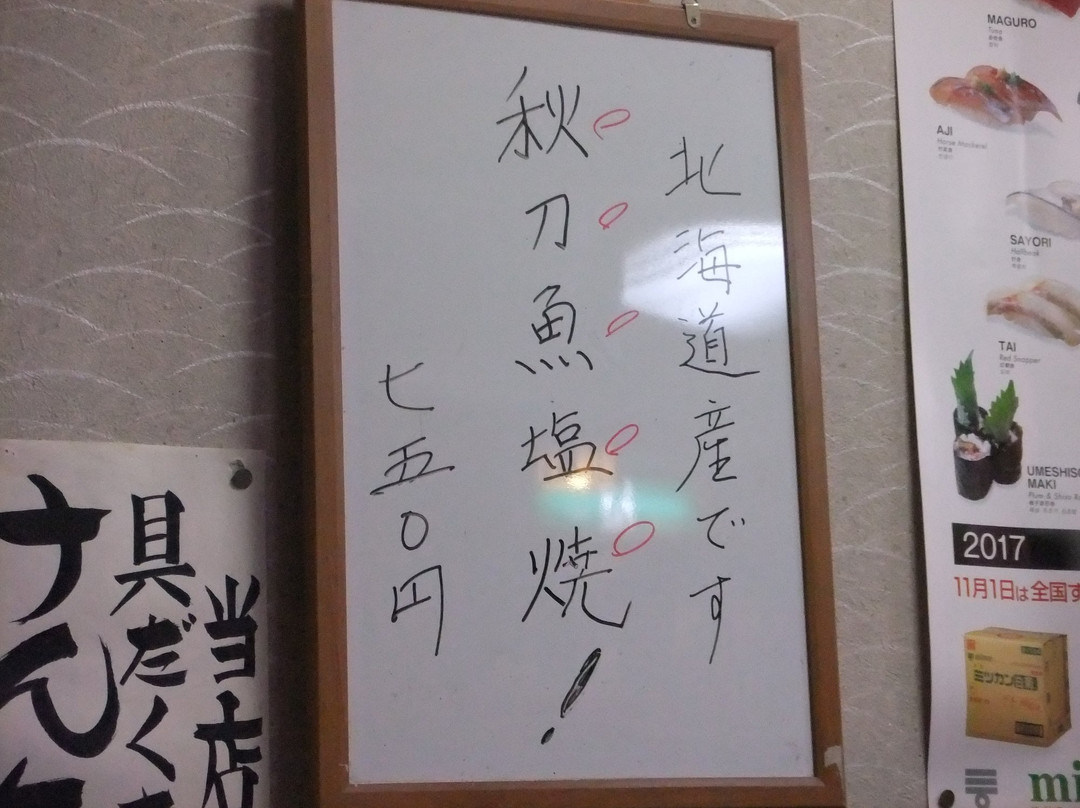 北海道産です
秋刀魚塩焼!
七五〇円
当店
具だく
MAGURO
Tuna
AJI
Horse Mackerel
SAYORI
Halfbeak
TAI
Red Snapper
UMESHISO
MAKI
2017
11月1日は全国す
ミツカン
mi